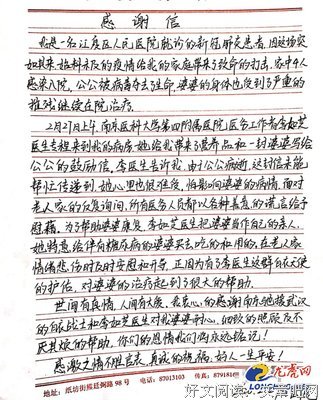 感谢信
我是一名江夏区人民医院就诊的新冠肺炎患者,因这场突
如其来,始料未及的疫情给我的家庭带来了致命的打击,家中4人
感染入院,公公被病毒夺去生命,婆婆的身体也受到了严重的
摧残继续在院治疗。
2月27日上午,南京医科大学第四附属医院,医务工作者李如芝
医生专程来到我的病房,她给我带来了营养品和一封婆婆写给
公公的鼓励信,李医生告诉我,由于公公病逝,这封信未能
帮忙传递到,她心里也很难受,怕影响婆婆的病情,面对
老人家的反复询问,所有医务人员都以各种善意的谎言给予
慰藉,为了帮助婆婆康复,李如芝医生把婆婆当作自己的亲人,
她特意给伴有糖尿病的婆婆买去吃的和用的,在老人家
情绪悲伤时及时安慰和开导,正因为有了李医生这群白衣天使
的护佑,对婆婆的治疗起到了很大的帮助。
世间有真情,人间有大爱,我衷心的感谢南京驰援武汉
的白衣战士和李如芝医生对我婆婆耐心,细致的照顾及不
厌其烦的帮助,你们的恩情我们将永远铭记!
感激之情不胜言表,真诚的祝福:好人一生平安!
地址:纸坊街熊廷弼路98号 电话:87013103 传真:879181
龙斋网
好文阅读